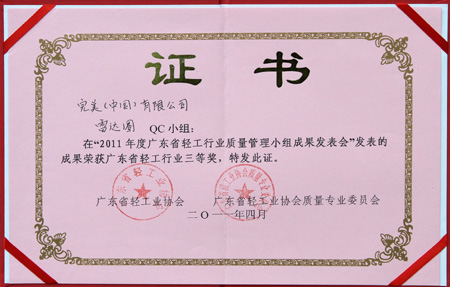 证书
完美(中国)有限公司
雷达图 QC小组:
在“2011年度广东省轻工行业质量管理小组成果发表会”发表的
成果荣获广东省轻工行业三等奖,特发此证。
广东省轻工业协会 广东省轻工业协会质量专业委员会
二〇一一年四月